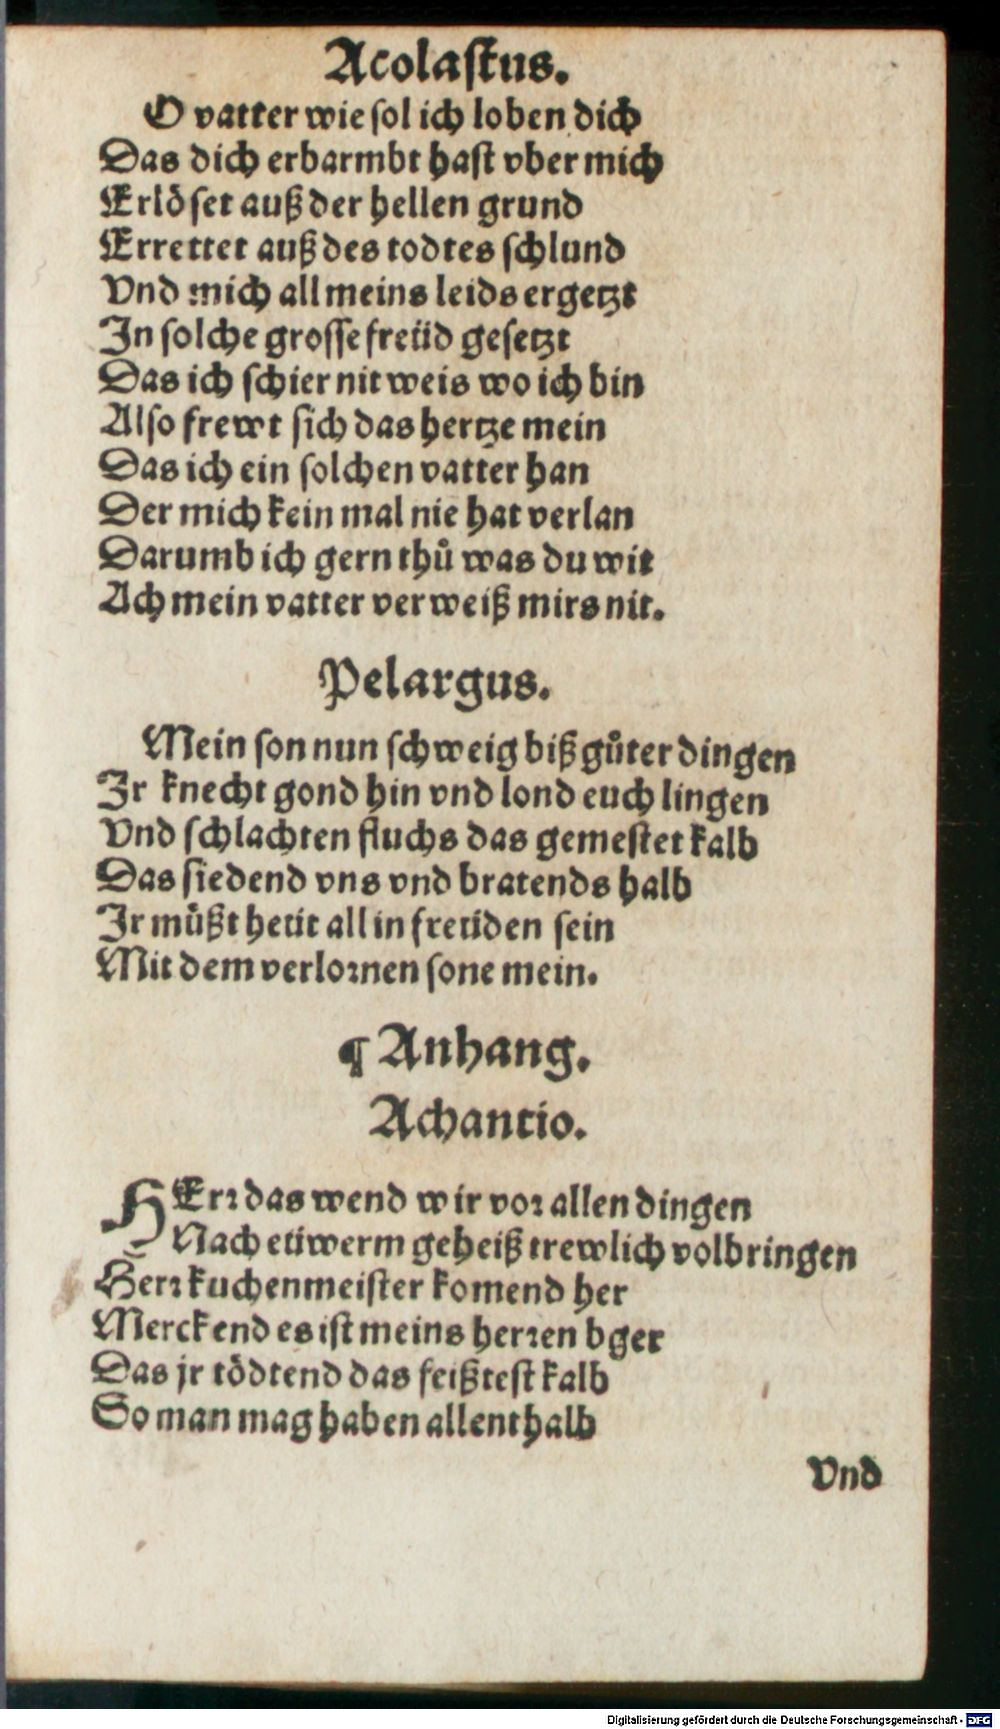 Acolaſtus.
O vatter wie ſol ich loben dich
Das dich erbarmbt haſt vber mich
Erlöſet auß der hellen grund
Errettet auß des todtes ſchlund
Vnd mich all meins leids ergetzt
In ſolche groſſe freüd geſetzt
Das ich ſchier nit weis wo ich bin
Alſo frewt ſich das hertze mein
Das ich ein ſolchen vatter han
Der mich kein mal nie hat verlan
Darumb ich gern thů was du wit
Ach mein vatter verweiß mirs nit.
Pelargus.
Mein ſon nun ſchweig biß gůter dingen
Ir knecht gond hin vnd lond euch lingen
Vnd ſchlachten fluchs das gemeſtet kalb
Das ſiedend vns vnd bratends halb
Ir müßt heüt all in freüden ſein
Mit dem verloꝛnen ſone mein.
¶ Anhang.
Achantio.
HErꝛ das wend wir voꝛ allen dingen
Nach eüwerm geheiß trewlich volbringen
Herꝛ kuchenmeiſter komend her
Merckend es iſt meins herꝛen bger
Das jr tödtend das feißteſt kalb
So man mag haben allenthalb
Vnd
Digitalisierung gefördert durch die Deutsche Forschungsgemeinschaft - DFG